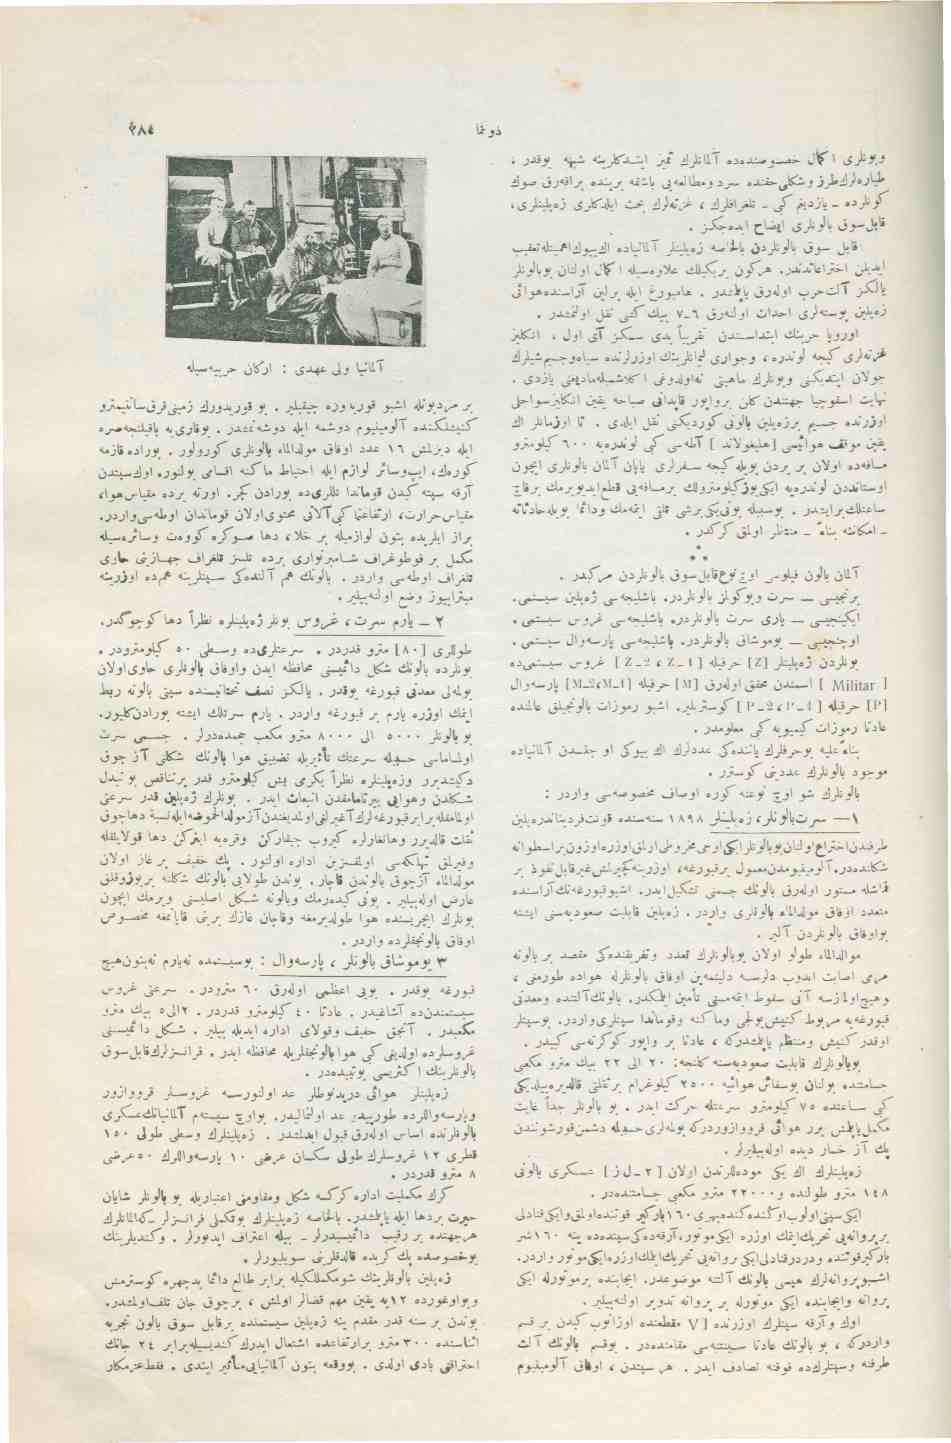 دونما
٣٨٤
وبونلری اكمال خصوصنده‌ده آلمانلرك تميز ايتدكلرينه شبهه يوقدر ،
طياره‌لرك طرز وشكلی حقنده سرد ومطالعه‌يی باشقه برينده براقه‌رق صوك
كونلرده ـ يازديغم كبی ـ تلغرافلرك ، غزته‌لرك بحث ايلدكلری زه‌پلينلری،
قابل سوق بالونلری ايضاح ايده‌جكز .
قابل سوق بالونلردن بالخاصه زه‌پلينلر آلمانياده اك بيوك اهميتله تعقيب
ايديلن اختراعاتدندر. هركون بر يكيلك علاوه‌سيله اكمال اولنان بو بالونلر
يالكز آلت حرب اوله‌رق ياپلمشدر . هامبورغ ايله برلين آراسنده هوائی
زه‌پلين پوسته‌لری احداث اولنه‌رق ٦ـ٧ بيك كشی نقل اولنمشدر .
اوروپا حربنك ابتداسندن تقريباً يدی سكز آی اول ، انكليز
غزته‌لری كيجه لوندره ، وجواری ليمانلرينك اوزرلرنده سياه وجسيم شيلرك
جولان ايتديكنی وبونلرك ماهيتی نه‌اولدوغی اكلاشيله‌ماديغنی يازدی .
نهايت اسقوچيا جهتندن كلن بر واپور قاپدانی صباحه يقين انكليز سواحلی
اوزرنده جسيم بر زه‌پلين بالونی كورديكنی نقل ايلدی . تا اوزمانلر اك
يقين موقف هوائيسی [هليغولاند] آطه‌سی كبی لوندره‌يه ٦٠٠ كيلومترو
مسافه‌ده اولان بر يردن بويله كيجه سفرلری ياپان آلمان بالونلری ايچون
ساعتلك بر ايشدر . بوسبيله بونی يكی برشی ظن ايتمه‌مك ودائما بويله حادثاته
ـ امكانه بناءً ـ منتظر اولمق كركدر .
* * *
آلمان بالون فيلوسی اوچ نوع قابل سوق بالونلردن مركبدر .
برنجيسی — سرت وبوكولمز بالونلردر. باشليجه‌سی زه‌پلين سيستمی.
ايكينجيسی — ياری سرت بالونلردر. باشليجه‌سی غروس سيستمی .
اوچنجيسی — يوموشاق بالونلردر. باشليجه‌سی پارسه‌وال سيستمی .
بونلردن ژه‌پلينلر [Z] حرفيله [ Z_1 ، Z_2 ] غروس سيستمی‌ده
[ Militar ] اسمندن محقق اوله‌رق [M] حرفيله [M_1،M_2] پارسه‌وال
[P] حرفيله [ P_1 ، P_2 ] كوستريلير. اشبو رموزات بالونجيلق عالمنده
عادتا رموزات كيميويه كبی معلومدر.
بناءً عليه بو حرفلرك ياننده‌كی عددلرك اك بيوكی او جنسدن آلمانياده
موجود بالونلرك عددينی كوسترر .
بالونلرك شو اوچ نوعنه كوره اوصاف مخصوصه‌سی واردر :
١— سرت بالونلر، زه‌پلينلر ١٨٩٨ سنه‌سنده قونت فرديناند زه‌پلين
طرفندن اختراع اولنان بو بالونلر ايكی اوجی مخروطی اولمق اوزره اوزون بر اسطوانه
شكلنده‌در. آلومينيومدن معمول بر قبورغه، اوزرينه كچيريلمش غير قابل نفوذ بر
قماشله مستور اوله‌رق بالونك جسمنی تشكيل ايدر. اشبو قبورغه‌نك آراسنده
متعدد اوفاق مولدالماء بالونلری واردر . زه‌پلين قابليت صعوديه‌سنی ايشته
بو اوفاق بالونلردن آلير .
مولدالماء طولو اولان بو بالونلرك تعدد وتفريقنده‌كی مقصد بر بالونه
هرمی اصابت ايدوب دلرسه دلينمه‌ين اوفاق بالونلرله هواده طورمنی ،
وهيچ اولمازسه آنی سقوط ايتمه‌سنی تأمين ايلمكدر. بالونك آلتنده ومعدنی
قبورغه‌يه مربوط كنيش يولجی وماكنه وقوماندا سپتلری واردر. بوسپتلر
اوقدر كنيش ومنتظم ياپلمشدركه ، عادتا بر واپور كوكرته‌سی كبيدر .
بو بالونلرك قابليت صعوديه‌سنه كلنجه: ٢٠ الی ٢٢ بيك مترو مكعبی
جسامتنده بولنان بو سفائن هوائيه ٢٥٠٠ كيلوغرام بر ثقلتی قالديره‌بيلديكی
كبی ساعتده ٧٥ كيلومترو سرعتله حركت ايدر . بو بالونلر جداً غايت
مكمل ياپلمش برر هوائی قرووازوردركه بولمه‌لری حسبيله دشمن قورشونندن
پك آز خسار ديده اوله‌بيليرلر.
زه‌پلينلرك اك يكی موده‌للرندن اولان [٢ـ ل ز ] عسكری بالونی
١٤٨ مترو طولنده و ٢٢٠٠٠ مترو مكعبی جسامتنده‌در .
ايكی سپتی اولوب اوكنده‌كنده بهری ١٦٠ باركير قوتنده اولمق وايكی قنادلی
بر پروانه‌يی تحريك ايتمك اوزره ايكی موتور، آرقه‌ده‌كی سپتده‌ده ينه ١٦٠ شر
باركير قوتنده ودرد قنادلی ايكی پروانه‌يی تحريك ايتمك اوزره ايكی موتور واردر.
اشبو پروانه‌لرك هپسی بالونك آلتنه موضوعدر. ايجابنده بر موتورله ايكی
پروانه وايجابنده ايكی موتورله بر پروانه تدوير اولنه‌بيلير.
اوك وآرقه سپتلرك اوزرنده [V مقطعنده اوزانوب كيدن بر قسم
واردركه ، بو بالونك عادتا سينته‌سی مقامنده‌در . بوقسم بالونك آلت
طرفنه وسپتلرك‌ده فوقنه تصادف ايدر . هر سپتدن ، اوفاق آلومينيوم
آلمانيا ولی عهدی : اركان حربيه‌سيله
بر مرديونله اشبو قوريدوره چيقيلير . بو قوريدورك زمينی قرق سانتيمترو
كنيشلكنده آلومينيوم دوشمه ايله دوشنمشدر . يوقاری‌يه باقيلنجه صره
ايله ديزلمش ١٦ عدد اوفاق مولدالماء بالونلری كورولور . بوراده قازمه
كورك، ايپ وسائر لوازم ايله احتياط ماكنه اقسامی بولنور. اوك سپتدن
آرقه سپته كيدن قوماندا تللری‌ده بورادن كچر. اورته يرده مقياس هوا،
مقياس حرارت، ارتفاعنما كبی آلاتی محتوی اولان قوماندان اوطه‌سی واردر.
براز ايلريده بتون لوازميله بر خلا، دها صوكره كوورت وسائره‌سيله
مكمل بر فوطوغراف شامبرنواری برده تلسز تلغراف جهازينی حاوی
تلغراف اوطه‌سی واردر . بالونك هم آلتنده‌كی سپتلرينه هم‌ده اوزرينه
ميتراليوز وضع اولنه‌بيلير .
٢ ـ يارم سرت ، غروس بونلر ژه‌پلينلره نظراً دها كوچوگدر.
طوللری [٨٠] مترو قدردر . سرعتلری‌ده وسطی ٥٠ كيلومترودر .
بونلرده بالونك شكل دائميسنی محافظه ايدن واوفاق بالونلری حاوی اولان
بولمه‌لی معدنی قبورغه يوقدر . يالكز نصف تحتانيسنده سپتی بالونه ربط
ايتمك اوزره يارم بر قبورغه واردر . يارم سرتلك ايشته بورادن كليور.
بو بالونلر ٥٠٠٠ الی ٨٠٠٠ مترو مكعب حجمده‌درلر . جسمی سرت
اولماماسی حسبيله سرعتك تأثيريله تضييق هوا بالونك شكلنی آز چوق
دكيشديرر وزه‌پلينلره نظراً يكرمی بش كيلومترو قدر بر تناقص بو تبدل
شكلدن وهوايی ييرتامامقدن انبعاث ايدر . بونلرك ژه‌پلين قدر سرعتی
ثقلت قالديرر وهانغارلره كيروب چيقاركن وقره‌يه اينركن دها قولايلقله
وفيرلق تهلكه‌سی اولمقسزين اداره اولنور . پك خفيف بر غاز اولان
مولدالماء آزچوق بالوندن قاچار. بوندن طولايی بالونك شكلنه بر بوزوقلق
عارض اوله‌بيلير . بونی كيده‌رمك وبالونه شكل اصليسنی ويرمك ايچون
بونلرك ايچريسنده هوا طولديرمغه وقاچان غازك يرينی قاپاتمغه مخصوص
اوفاق بالونجقلرده واردر .
٣ يوموشاق بالونلر ، پارسه‌وال : بوسيستمده نه يارم نه بتون هيچ
قبورغه يوقدر . بويی اعظمی اوله‌رق ٦٠ مترودر . سرعتی غروس
سيستمندن‌ده آشاغيدر . عادتا ٤٠ كيلومترو قدردر . ٢الی٥ بيك مترو
مكعبدر. آنجق خفيف وقولای اداره ايديله بيلير . شكل دائميسنی
غروسلرده اولديغی كبی هوا بالونجقلريله محافظه ايدر . فرانسزلرك قابل سوق
بالونلرينك اكثريسی بوتيپده‌در .
زه‌پلينلر هوائی دريدنوطلر عد اولنورسه غروسلر قرووازور
وپارسه‌واللرده طورپيدبر عد اولنماليدر. بواوچ سيستم آلمانيانك عسكری
بالونلرنده اساس اوله‌رق قبول ايدلمشدر . زه‌پلينلرك وسطی طولی ١٥٠
قطری ١٢ غروسلرك طولی سكسان عرضی ١٠ پارسه‌واللرك ٥٠ عرضی
٨ مترو قدردر .
كرك مكمليت اداره كركسه شكل ومقاومتی اعتباريله بو بالونلر شايان
حيرت بردها ايله ياپلمشدر. بالخاصه زه‌پلينلرك بومكملی فرانسزلر ـ كه آلمانلرك
هرجهتنده بر رقيب دائميسيدرلر ـ بيله اعتراف ايديورلر . وكنديلرينك
بوخصوصده پك كريده قالدقلرينی سويليورلر .
ژه‌پلين بالونلرينك شومكمللكيله برابر طالع دائما بدچهره كوسترمش
وبواوغورده ١٢يه يقين مهم قضالر اولمش ، برچوق جان تلف اولمشدر.
بوندن بر سنه قدر مقدم ينه زه‌پلين سيستمنده بر قابل سوق بالون تجربه
اثناسنده ٣٠٠ مترو بر ارتفاعده اشتعال ايدرك كنديسيله برابر ٢٤ جانك
احتراقنی بادی اولدی . بووقعه بتون آلمانيايی متأثر ايتدی . فقط عزمكار